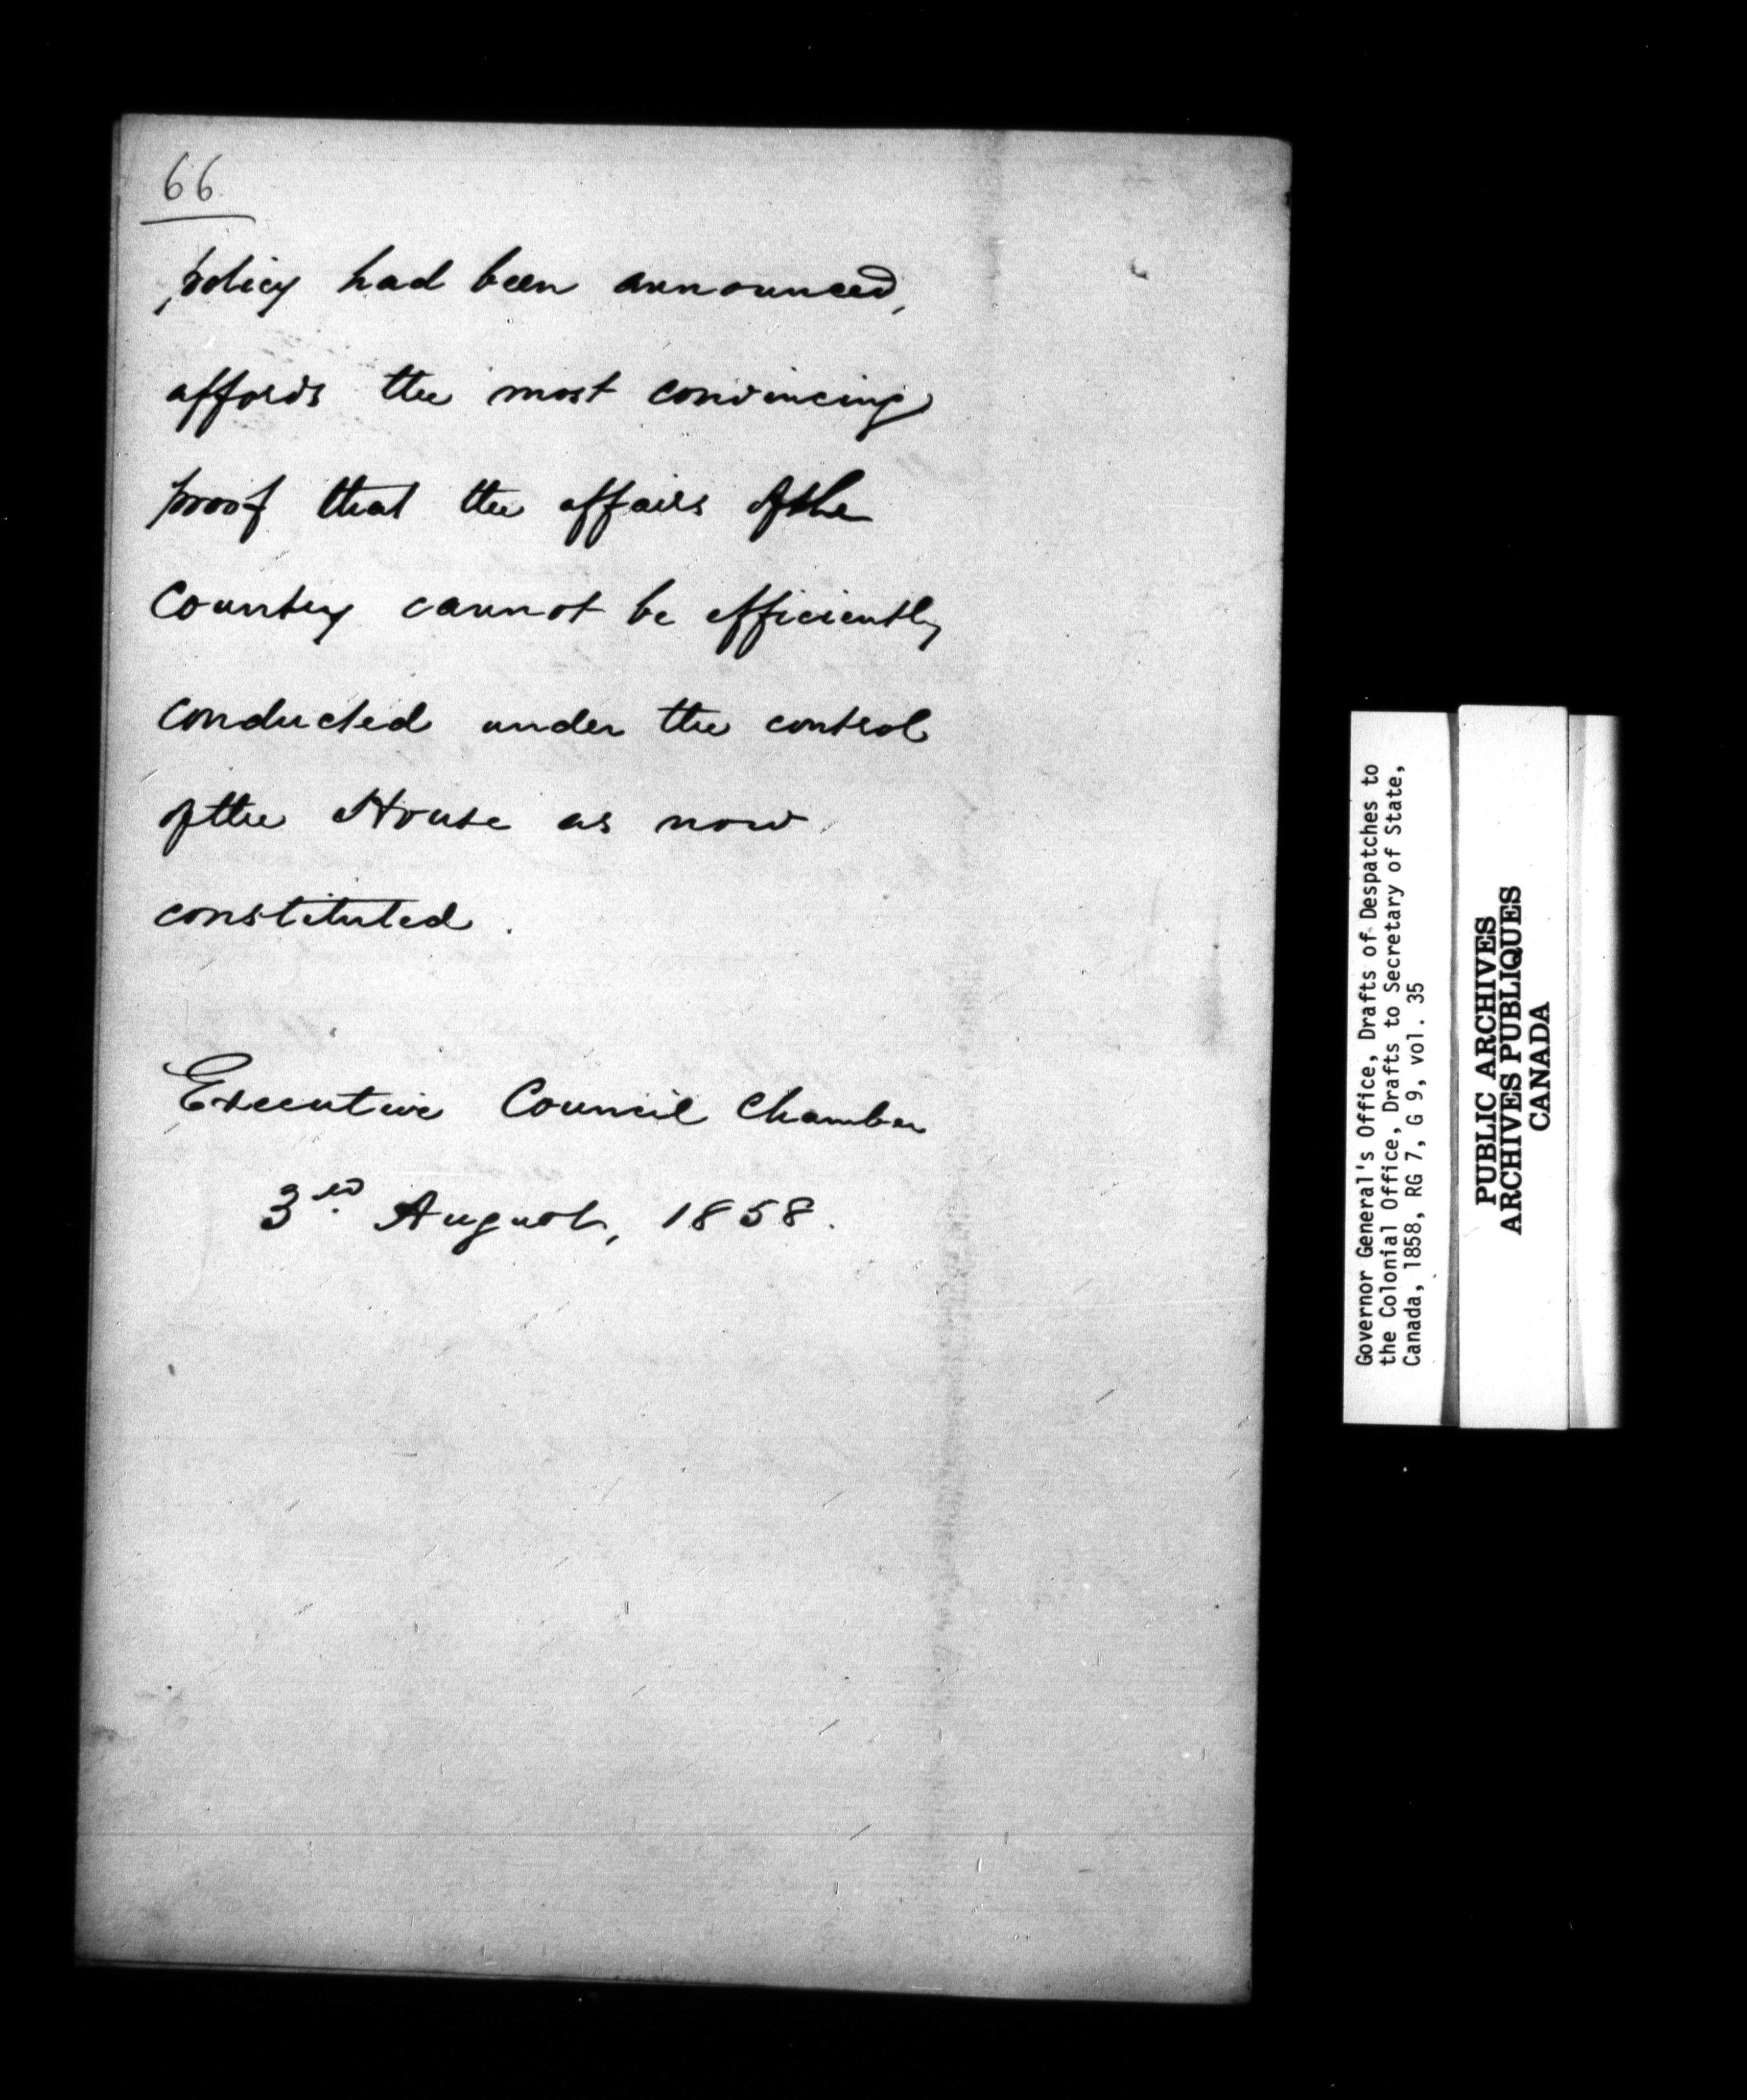 66
policy had been announced,
affords the most convincing
proof that the affairs of the
Country cannot be efficiently
conducted under the control
of the House as now
constituted.
Executive Council Chamber
3rd August, 1858.
Governor General's Office, Drafts of Despatches to
the Colonial Office, Drafts to Secretary of State,
Canada, 1858, RG 7, G 9, vol. 35
PUBLIC ARCHIVES
ARCHIVES PUBLIQUES
CANADA